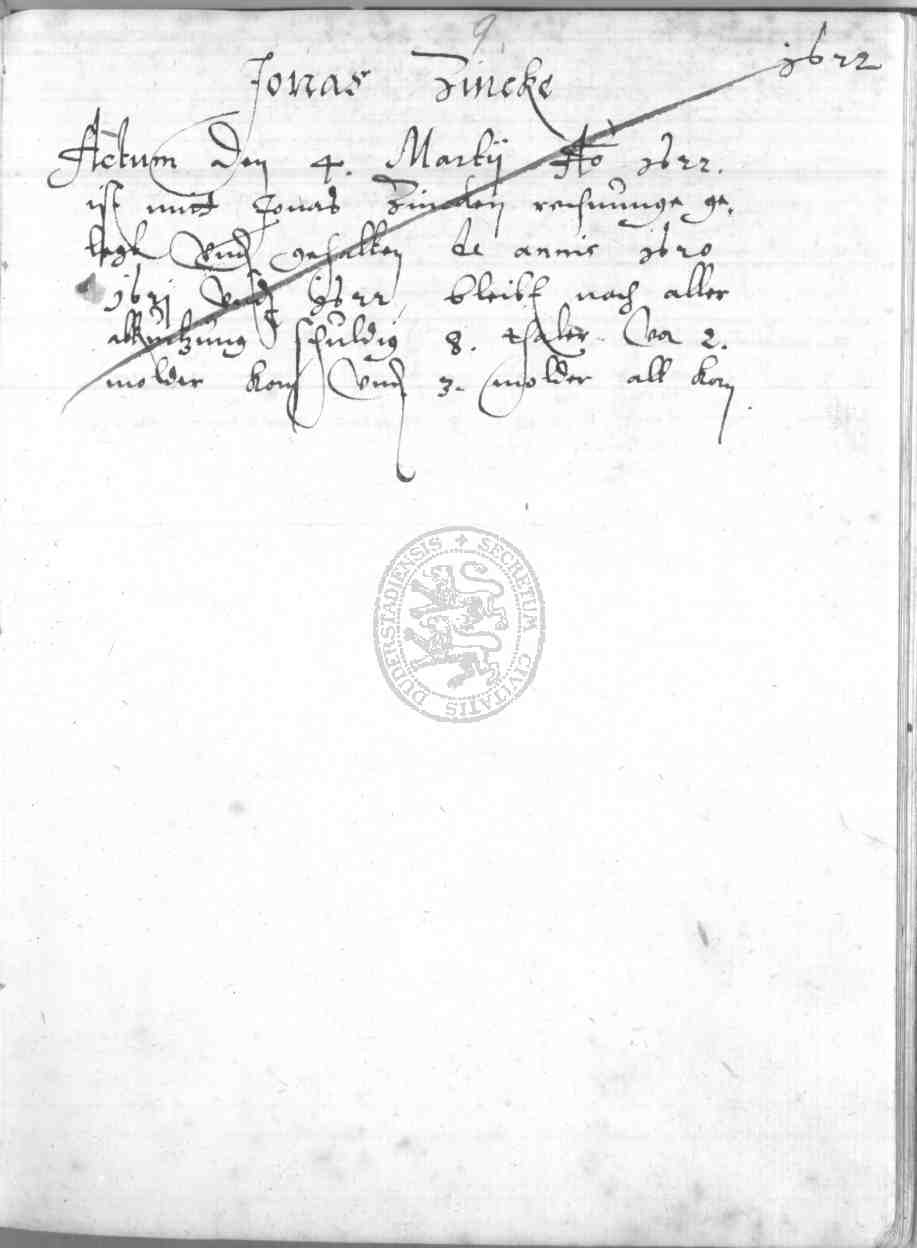 9
1622
Jonas Zincke
Actum Den 4. Martij Ao 1622.
ist mitt Jonas Zincken rechnunge ge,
legt Vnd gehalten de annis 1620
1621 Vnd 1622, bleibt nach aller
abkurtzung schuldig 8. thaler. Vo 2.
molder Korn Vnd 3. molder alt Korn
SECRETUM CIVITATIS DUDERSTADIENSIS